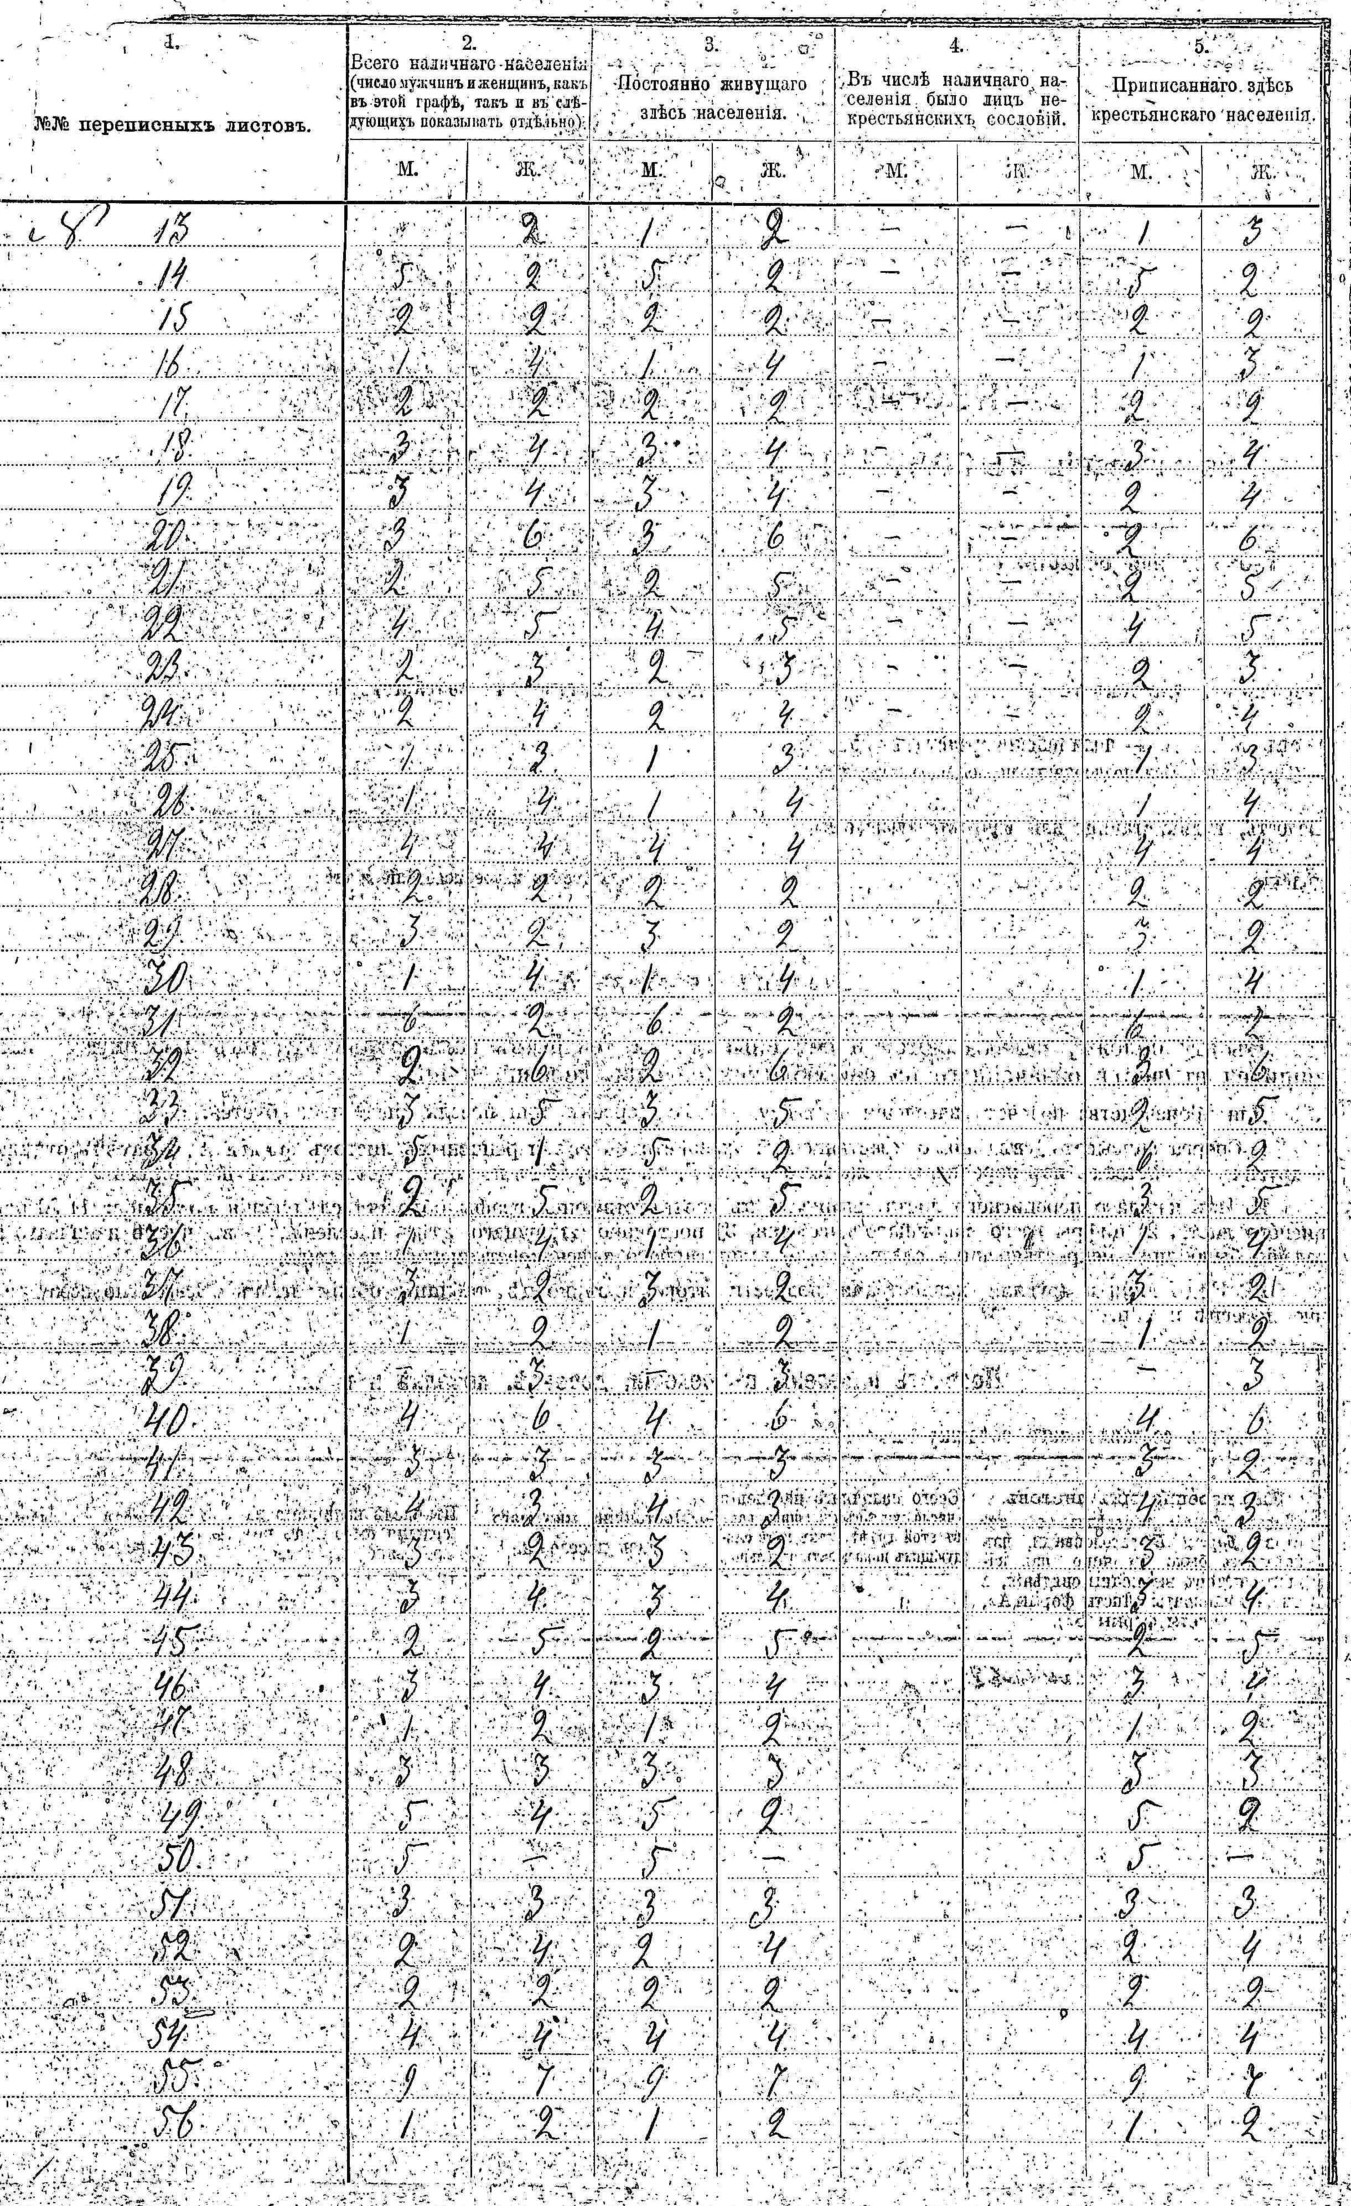 1. 2. 3. 4. 5.
№№ переписныхъ листовъ. Всего наличнаго населенія (число мужчинъ и женщинъ, какъ въ этой графѣ, такъ и въ слѣдующихъ показывать отдѣльно) Постоянно живущаго здѣсь населенія. Въ числѣ наличнаго населенія было лицъ некрестьянскихъ сословій. Приписаннаго здѣсь крестьянскаго населенія.
М. Ж. М. Ж. М. Ж. М. Ж.
13 2 1 2 — — 1 3
14 5 2 5 2 — — 5 2
15 2 2 2 2 — — 2 2
16 1 4 1 4 — — 1 3
17 2 2 2 2 — — 2 2
18 3 4 3 4 — — 3 4
19 3 4 3 4 — — 2 4
20 3 6 3 6 — — 2 6
21 2 5 2 5 — — 2 5
22 4 5 4 5 — — 4 5
23 2 3 2 3 — — 2 3
24 2 4 2 4 — — 2 4
25 1 3 1 3 1 3
26 1 4 1 4 1 4
27 4 4 4 4 4 4
28 2 2 2 2 2 2
29 3 2 3 2 3 2
30 1 4 1 4 1 4
31 6 2 6 2 6 2
32 2 6 2 6 3 6
33 3 5 3 5 2 5
34 5 1 5 2 6 2
35 2 5 2 5 3 5
36 1 4 1 4 1 4
37 3 2 3 2 3 2
38 1 2 1 2 1 2
39 — 3 — 3 — 3
40 4 6 4 6 4 6
41 3 3 3 3 3 2
42 4 3 4 3 4 3
43 3 2 3 2 3 2
44 3 4 3 4 3 4
45 2 5 2 5 2 5
46 3 4 3 4 3 4
47 1 2 1 2 1 2
48 3 3 3 3 3 3
49 5 4 5 2 5 2
50 5 — 5 — 5 —
51 3 3 3 3 3 3
52 2 4 2 4 2 4
53 2 2 2 2 2 2
54 4 4 4 4 4 4
55 9 7 9 7 9 7
56 1 2 1 2 1 2